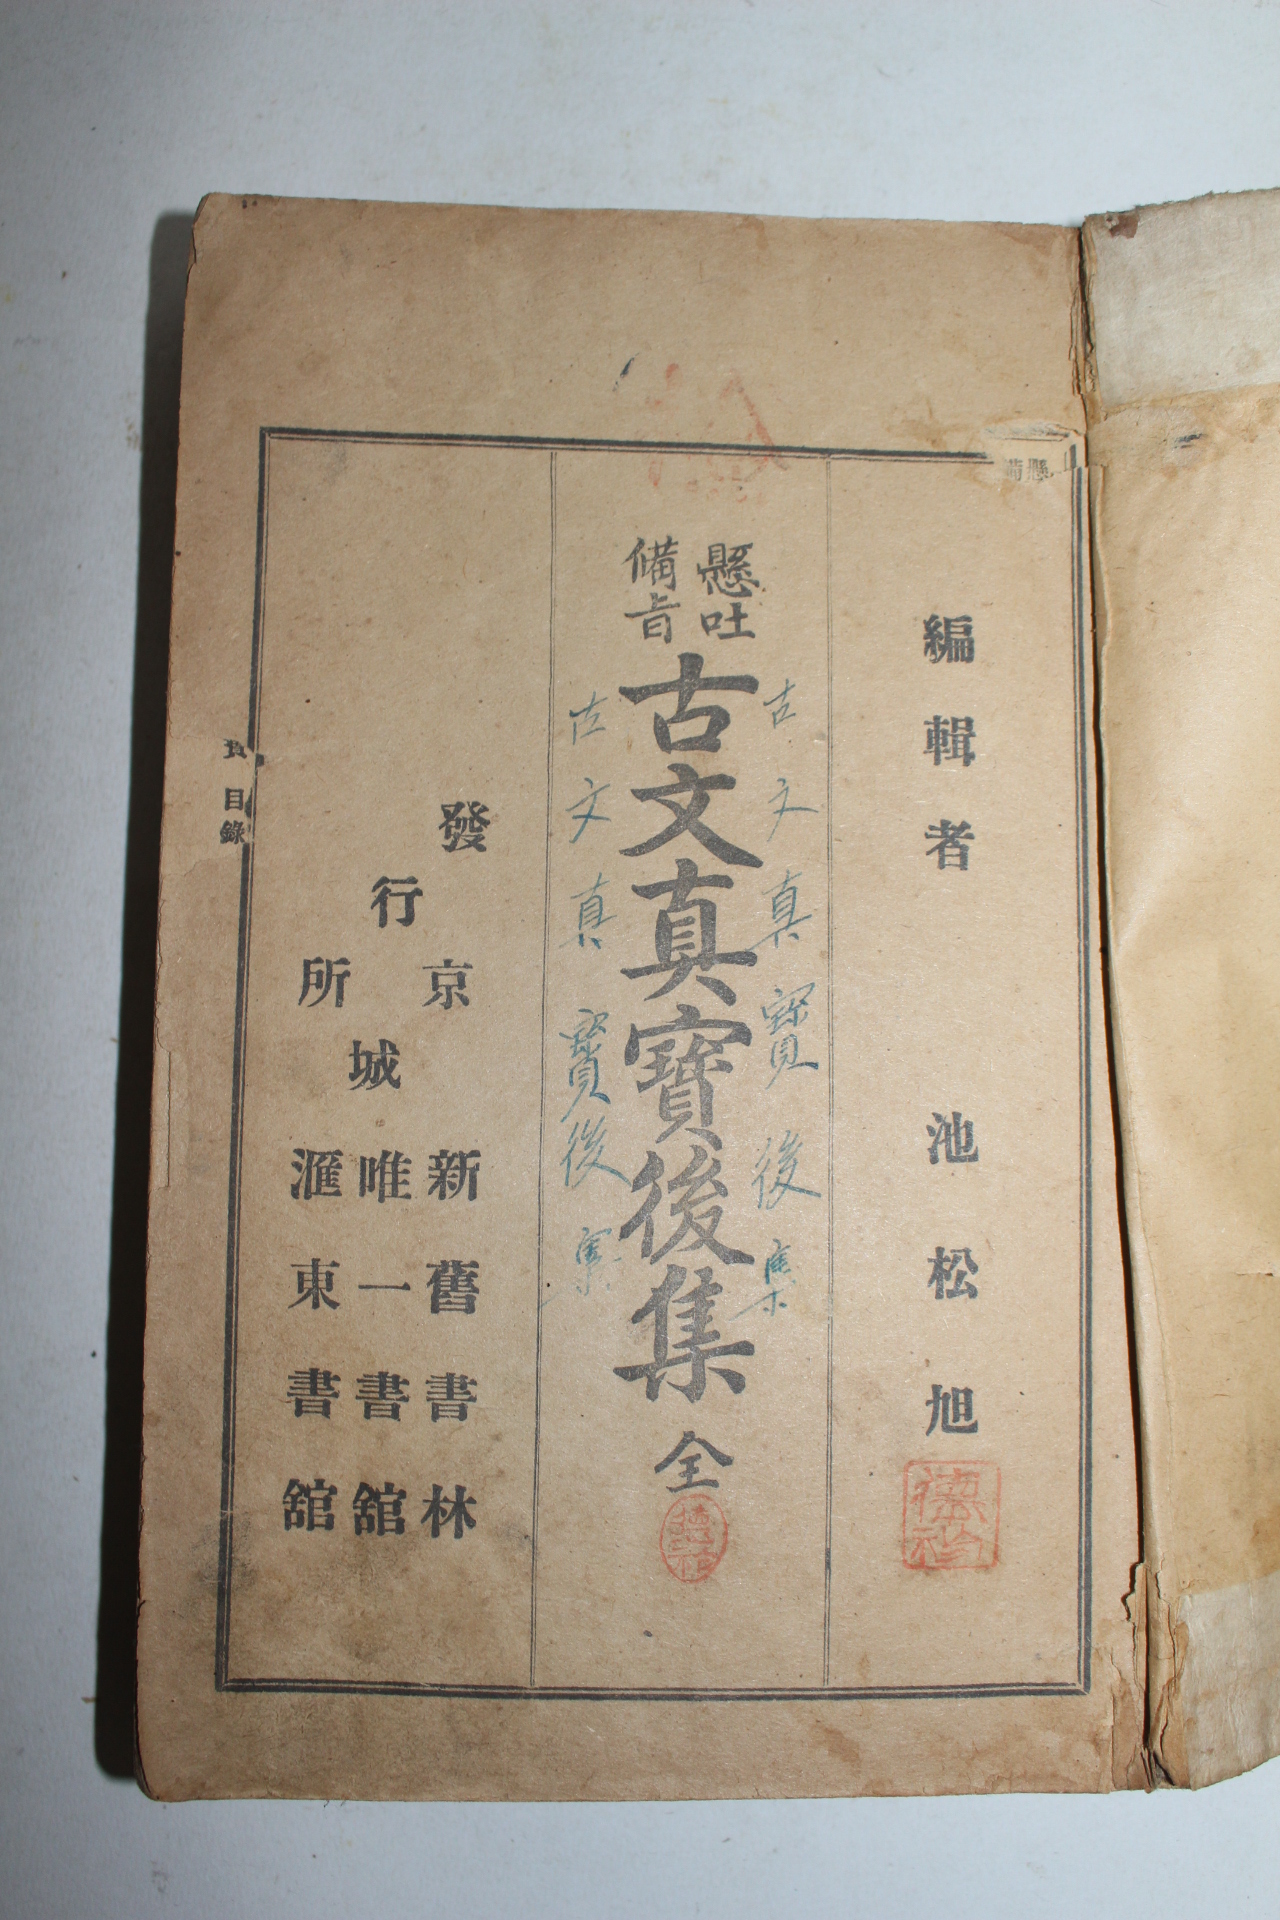 編輯者 池松旭
懸吐
備旨
古文眞寶後集 全
古文真寶後集
古文真寶後集
發行所
京城
新舊書林
唯一書舘
滙東書舘
目錄
懸備